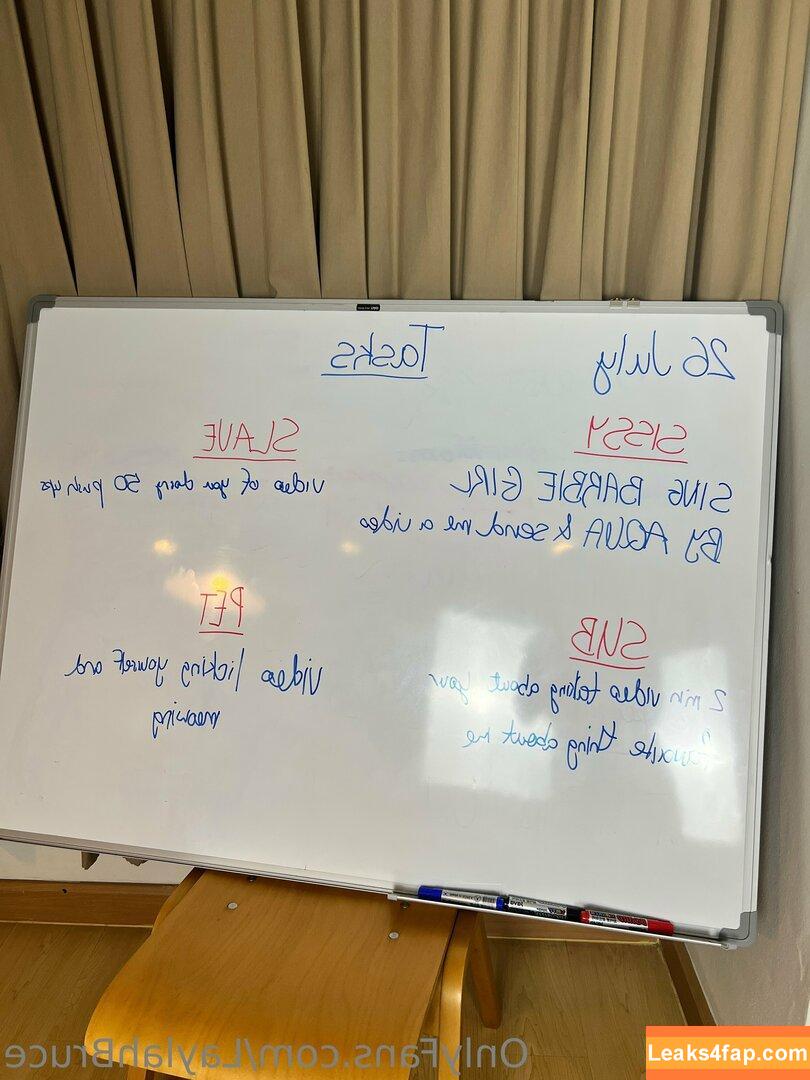 26 July
Tasks
SISSY
SING BARBIE GIRL
BY AQUA & send me a video
SLAVE
video of you doing 50 push ups
SUB
2 min video talking about your
favourite thing about me
PET
video licking yourself and
meowing
OnlyFans.com/LaylahBruce
Leaks4fap.com